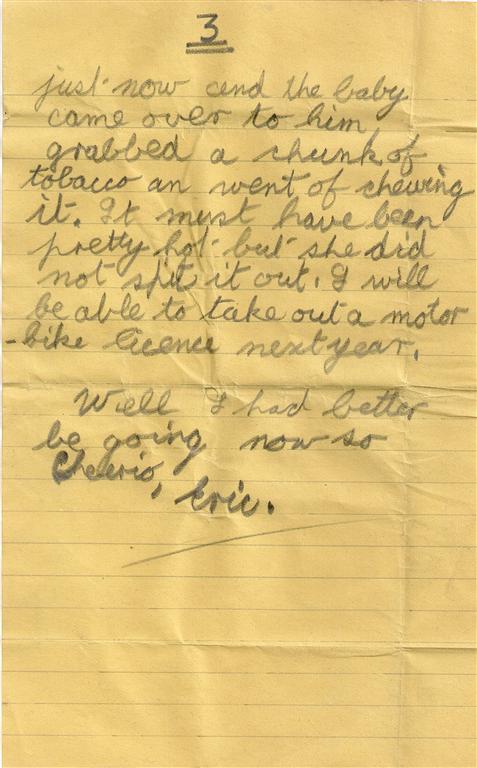 3
just now and the baby
came over to him
grabbed a chunk of
tobacco an went of chewing
it. It must have been
pretty hot but she did
not spit it out. I will
be able to take out a motor
-bike licence next year.
Well I had better
be going now so
Cheerio,
Eric.